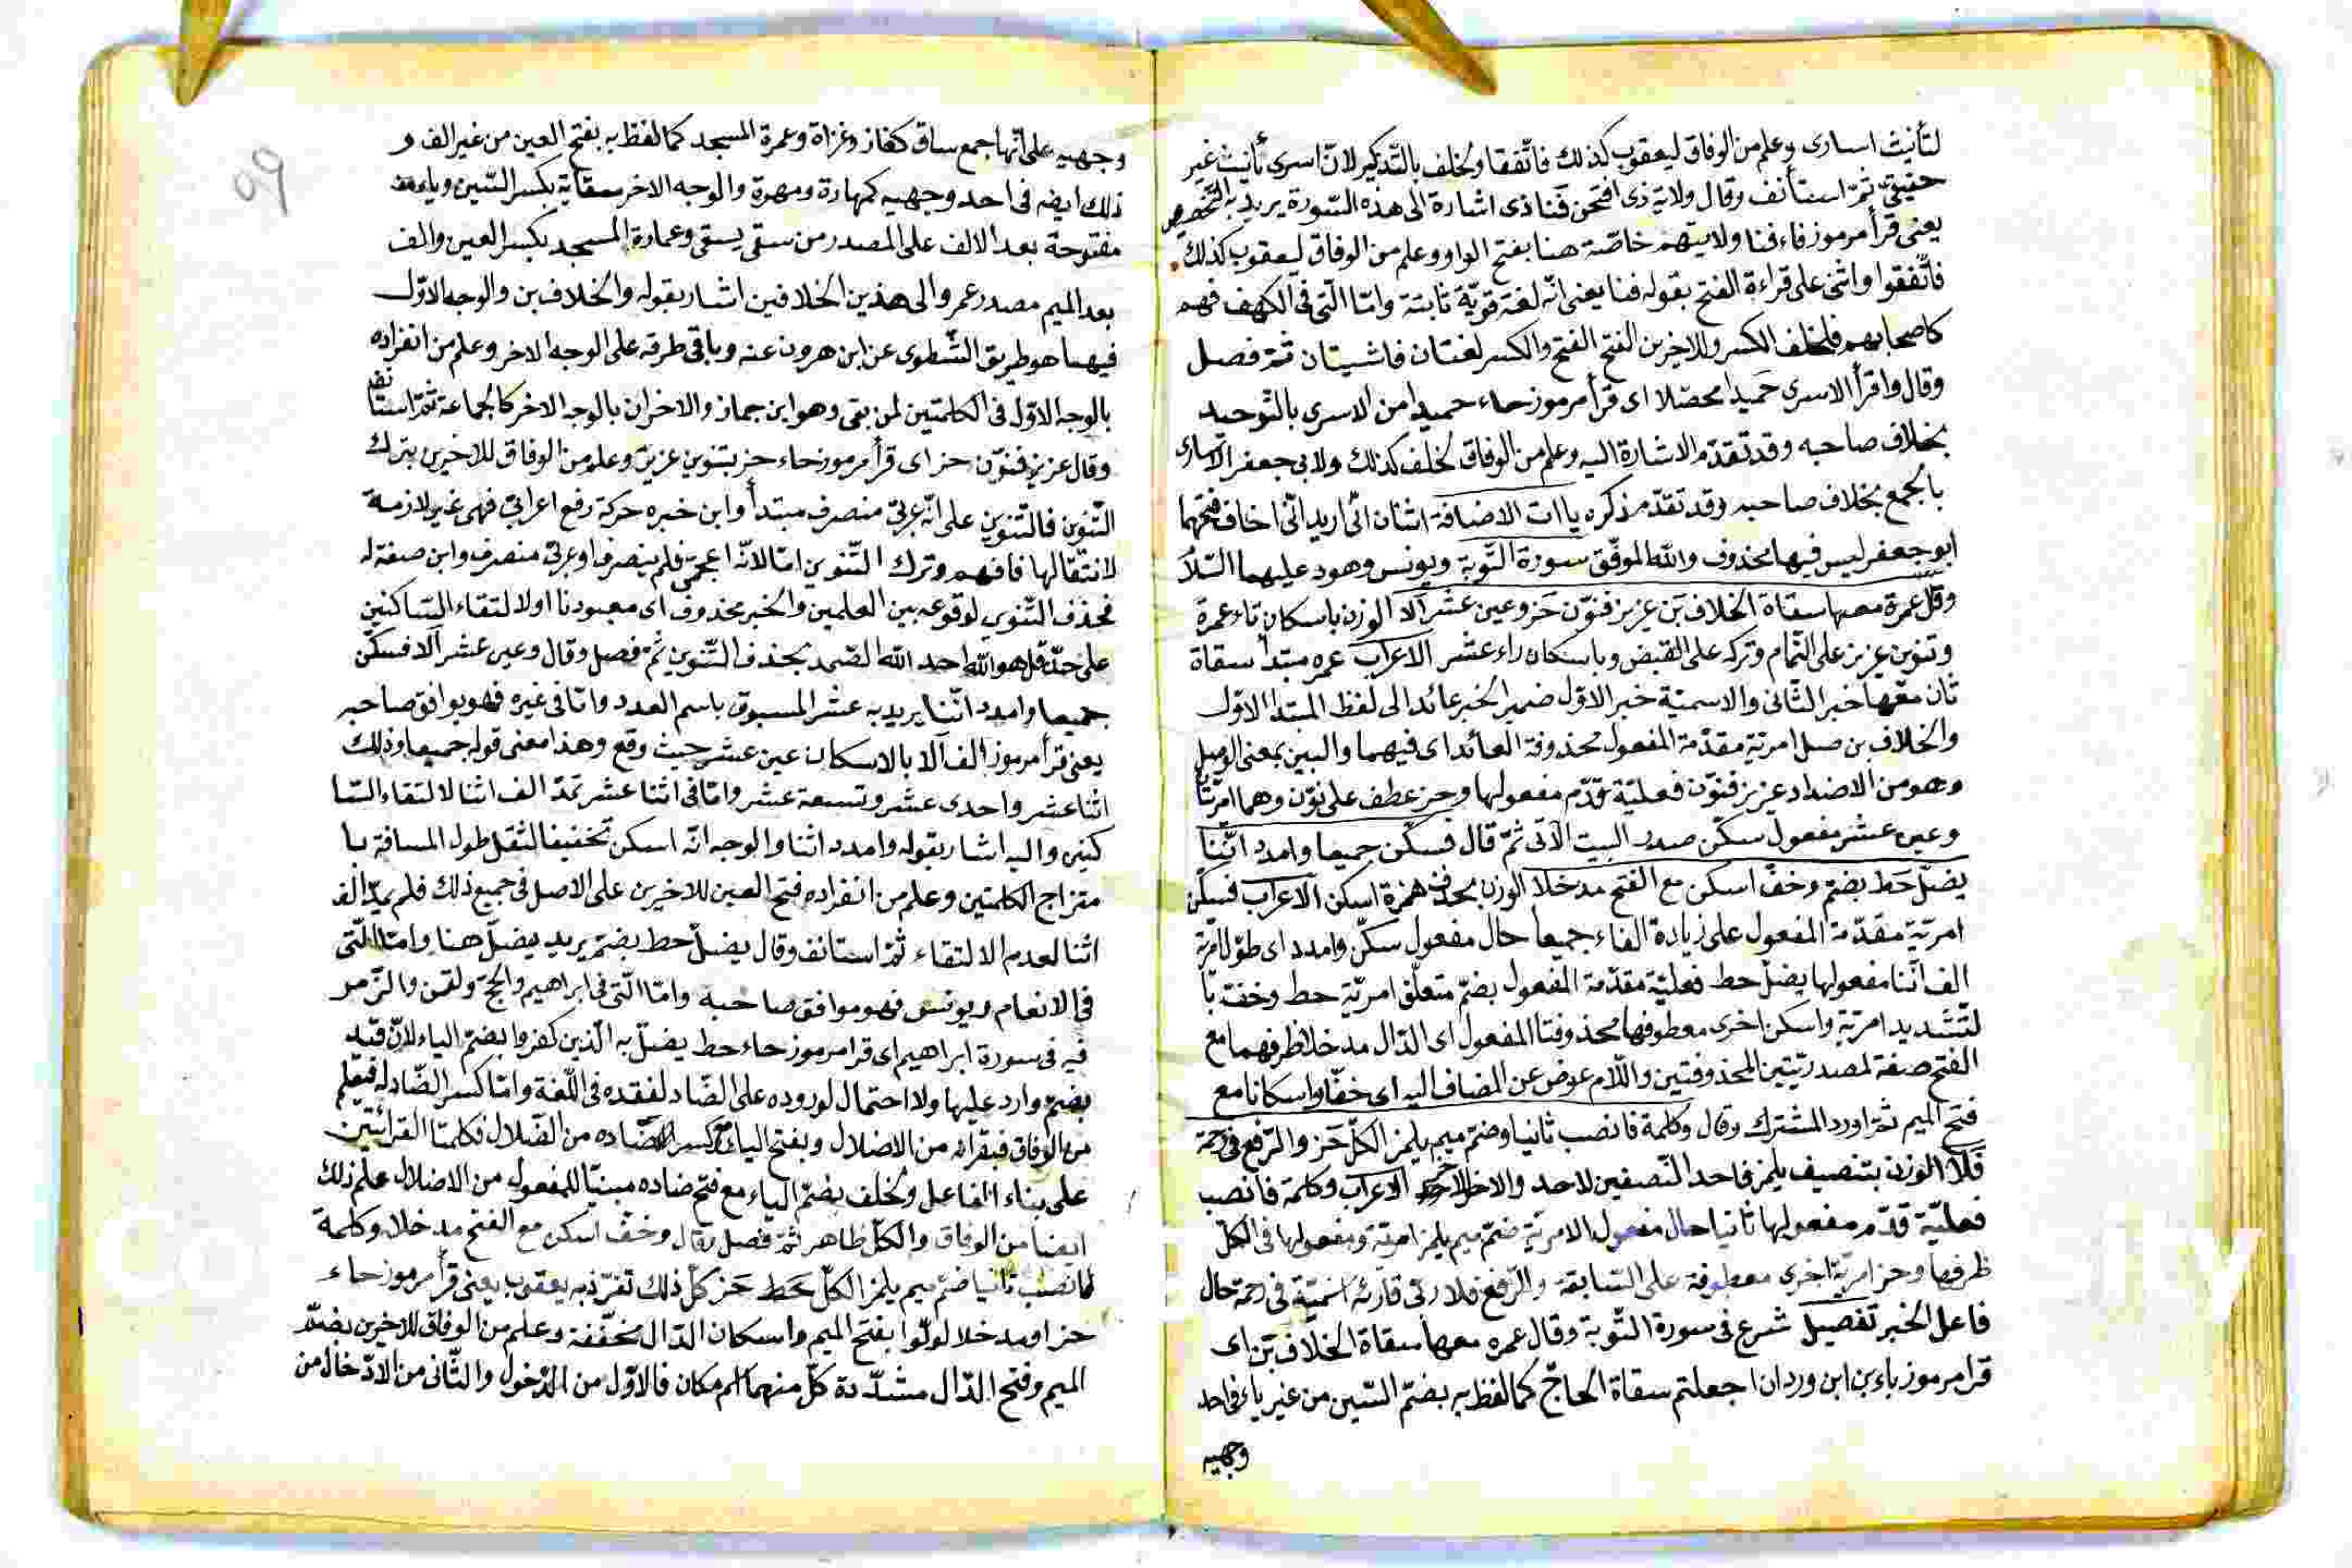 لتأنيث اسارى وعلم من الوفاق ليعقوب كذلك فاتّفقا ولخلف بالتّذكير لانّ اسرى تأنيث غير
حقيقيّ ثمّ استأنف وقال ولاية ذى افتحن فنا ذى اشارة الى هذه السّورة يريد به التّخصيص
يعنى قرأ مرموز فاء فنا ولايتهم خاصّة هنا بفتح الواو وعلم من الوفاق ليعقوب كذلك
فاتّفقوا واثنى على قراءة الفتح بقوله فنا يعنى انّه لغة قويّة ثابتة وامّا الّتى فى الكهف فهم
كاصحابهم فلخلف الكسر وللاخرين الفتح الفتح والكسر لغتان فاشيتان ثمّ فصل
وقال واقرأ الاسرى حميدا محصّلا اى قرأ مرموز حاء حميدا من الاسرى بالتّوحيد
بخلاف صاحبه وقد تقدّم الاشارة اليه وعلم من الوفاق لخلف كذلك ولابى جعفر الاسارى
بالجمع بخلاف صاحبه وقد تقدّم ذكره ياات الاضافة اثنان انّى اريد انّى اخاف فتحهما
ابو جعفر ليس فيها محذوف والله الموفّق سورة التّوبة ويونس وهود عليهما السّلا
وقل عمرة معها سقاة الخلاف بن عزيز فنوّن حز وعين عشر الا الوزن باسكان تاء عمرة
وتنوين عزيز على التّمام وتركه على القبض وباسكان راء عشر الاعراب عمره مبتدأ سقاة
ثان معها خبر الثّانى والاسميّة خبر الاوّل ضمير الخبر عائد الى لفظ المبتدا الاوّل
والخلاف بن صل امريّة مقدّمة المفعول محذوفة العائد اى فيهما والبين بمعنى الوصل
وهو من الاضداد عزيز فنوّن فعليّة قدّم مفعولها وحز عطف على نوّن وهما امريّتا
وعين عشر مفعول سكّن صدر البيت الآتى ثمّ قال فسكّن جميعا وامدد اثنا
يضلّ حط بضمّ وخفّ اسكن مع الفتح مدخلا الوزن بحذف همزة اسكن الاعراب فسكّن
امريّة مقدّمة المفعول على زيادة الفاء جميعا حال مفعول سكّن وامدد اى طوّل امريّة
الف اثنا مفعولها يضلّ حط فعليّة مقدّمة المفعول بضمّ متعلّق امريّة حط وخفّ با
لتّشديد امريّة واسكن اخرى معطوفها محذوفتا المفعول اى الدّال مدخلا ظرفهما مع
الفتح صفة لمصدريّتين المحذوفتين واللّام عوض عن المضاف اليه اى خفّا واسكانا مع
فتح الميم ثمّ اورد المشترك وقال وكلمة فانصب ثانيا وضمّ ميم يلمز الكلّ حز والرّفع فى رحمة
فلا الوزن بتنصيف يلمز فاحد النّصفين لاحد والاخر للاخر الاعراب وكلمة فانصب
فعليّة قدّم مفعولها ثانيا حال مفعول الامريّة ضمّ ميم يلمز امريّة ومفعولها فى الكلّ
ظرفها وحز امريّة اخرى معطوفة على السّابقة والرّفع فلا رتى قارئه اسميّة فى رحمة حال
فاعل الخبر تفصيل شرع فى سورة التّوبة وقال عمره معها سقاة الخلاف بن اى
قرا مرموز باء بن ابن وردان اجعلتم سقاة الحاجّ كما لفظ به بضمّ السّين من غير ياء فى احد
وجهيه
99
وجهيه على انّها جمع ساق كغاز وغزاة وعمرة المسجد كما لفظ به بفتح العين من غير الف و
ذلك ايضه فى احد وجهيه كمهارة ومهرة والوجه الاخر سقاية بكسر السّين وياء
مفتوحة بعد الالف على المصدر من سقى يسقى وعمارة المسجد بكسر العين والف
بعد الميم مصدر عمر والى هذين الخلافين اشار بقوله والخلاف بن والوجه الاوّل
فيهما هو طريق الشّطوى عن ابن هرون عنه وباقى طرقه على الوجه الاخر وعلم من انفراده
بالوجه الاوّل فى الكلمتين لمن بقى وهو ابن جماز والاخران بالوجه الاخر كالجماعة ثمّ استانف
وقال عزيز فنوّن حز اى قرأ مرموز حاء حز بتنوين عزيز وعلم من الوفاق للاخرين بترك
التّنوين فالتّنوين على انّه عربىّ منصرف مبتدأ وابن خبره حركة رفع اعرابىّ فهى غير لازمة
لانتقالها فافهم وترك التّنوين امّا لانّه اعجمىّ فلم ينصرف او عربىّ منصرف وابن صفة له
فحذف التّنوين لوقوعه بين العلمين والخبر محذوف اى معبودنا اولا لتقاء السّاكنين
على حدّ قل هو الله احد الله الصّمد بحذف التّنوين ثمّ فصل وقال وعين عشر الا فسكّن
جميعا وامدد اثنا يريد به عشر المسبوق باسم العدد وامّا فى غيره فهو يوافق صاحبه
يعنى قرأ مرموز الف آلا بالاسكان عين عشر حيث وقع وهذا معنى قوله جميعا وذلك
اثنا عشر واحدى عشر وتسعة عشر وامّا فى اثنا عشر تمدّ الف اثنا لالتقاء السّا
كنين واليه اشار بقوله وامدد اثنا والوجه انّه اسكن تخفيفا لثقل طول المسافة با
متزاج الكلمتين وعلم من انفراده فتح العين للاخرين على الاصل فى جميع ذلك فلم يمدّ الف
اثنا لعدم الالتقاء ثمّ استانف وقال يضلّ حط بضمّ يريد يضلّ هنا وامّا الّتى
فى الانعام ويونس فهو موافق صاحبه وامّا الّتى فى ابراهيم والحجّ ولقمن والزّمر
فيه فى سورة ابراهيم اى قرا مرموز حاء حط يضلّ به الّذين كفروا بضمّ الياء لانّ قيد
بضمّ وارد عليها ولا احتمال لوروده على الضّاد لفقده فى اللّغة وامّا كسر الضّاد له فيعلم
من الوفاق فبقرائه من الاضلال وبفتح الياء مع كسر ضاده من الضّلال فكلمتا القرائتين
على بناء الفاعل ولخلف بضمّ الياء مع فتح ضاده مبنيّا للمفعول من الاضلال علم ذلك
ايضا من الوفاق والكلّ ظاهر ثمّ فصل وقال وخفّ اسكن مع الفتح مدخلا وكلمة
فانصب ثانيا ضمّ ميم يلمز الكلّ حط حز كلّ ذلك تفرّد به يعقوب يعنى قرأ مرموز حاء
حز او مدخلا لولّوا بفتح الميم واسكان الدّال مخفّفة وعلم من الوفاق للاخرين بضمّ
الميم وفتح الدّال مشدّدة كلّ منهما اسم مكان فالاوّل من الدّخول والثّانى من الادّخال من